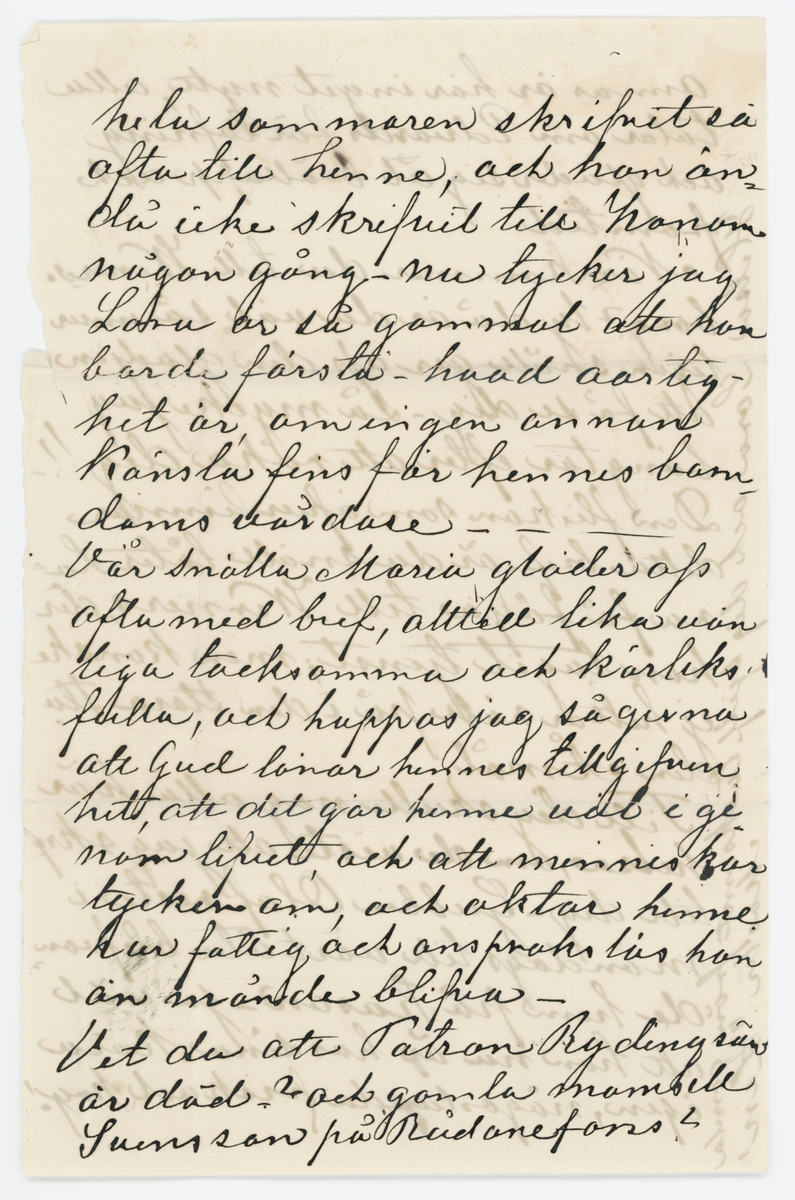 hela sommaren skrifvit så
ofta till henne, och hon än=
då icke skrifvit till honom
någon gång – nu tycker jag
Lova är så gammal att hon
borde förstå – hvad aartig-
het är, om ingen annan
Känsla fins för hennes barn-
doms vårdare – – –
Vår snälla Maria gläder oss
ofta med bref, alltid lika vän
liga tacksamma och kärleks
fulla, och hoppas jag så gerna
att Gud lönar hennes tillgifven
het, att det går henne väl i ge
nom lifvet, och att menniskor
tycker om, och aktar henne
hur fattig och anspråkslös hon
än månde blifva –
Vet du att Patron Rydingsvärd
är död – ? och gamla mamsell
Svensson på Rådanefors ?